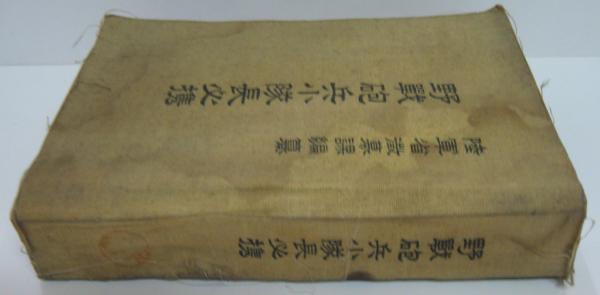 野戰砲兵小隊長必携
陸軍省徴募課編纂
野戰砲兵小隊長必携